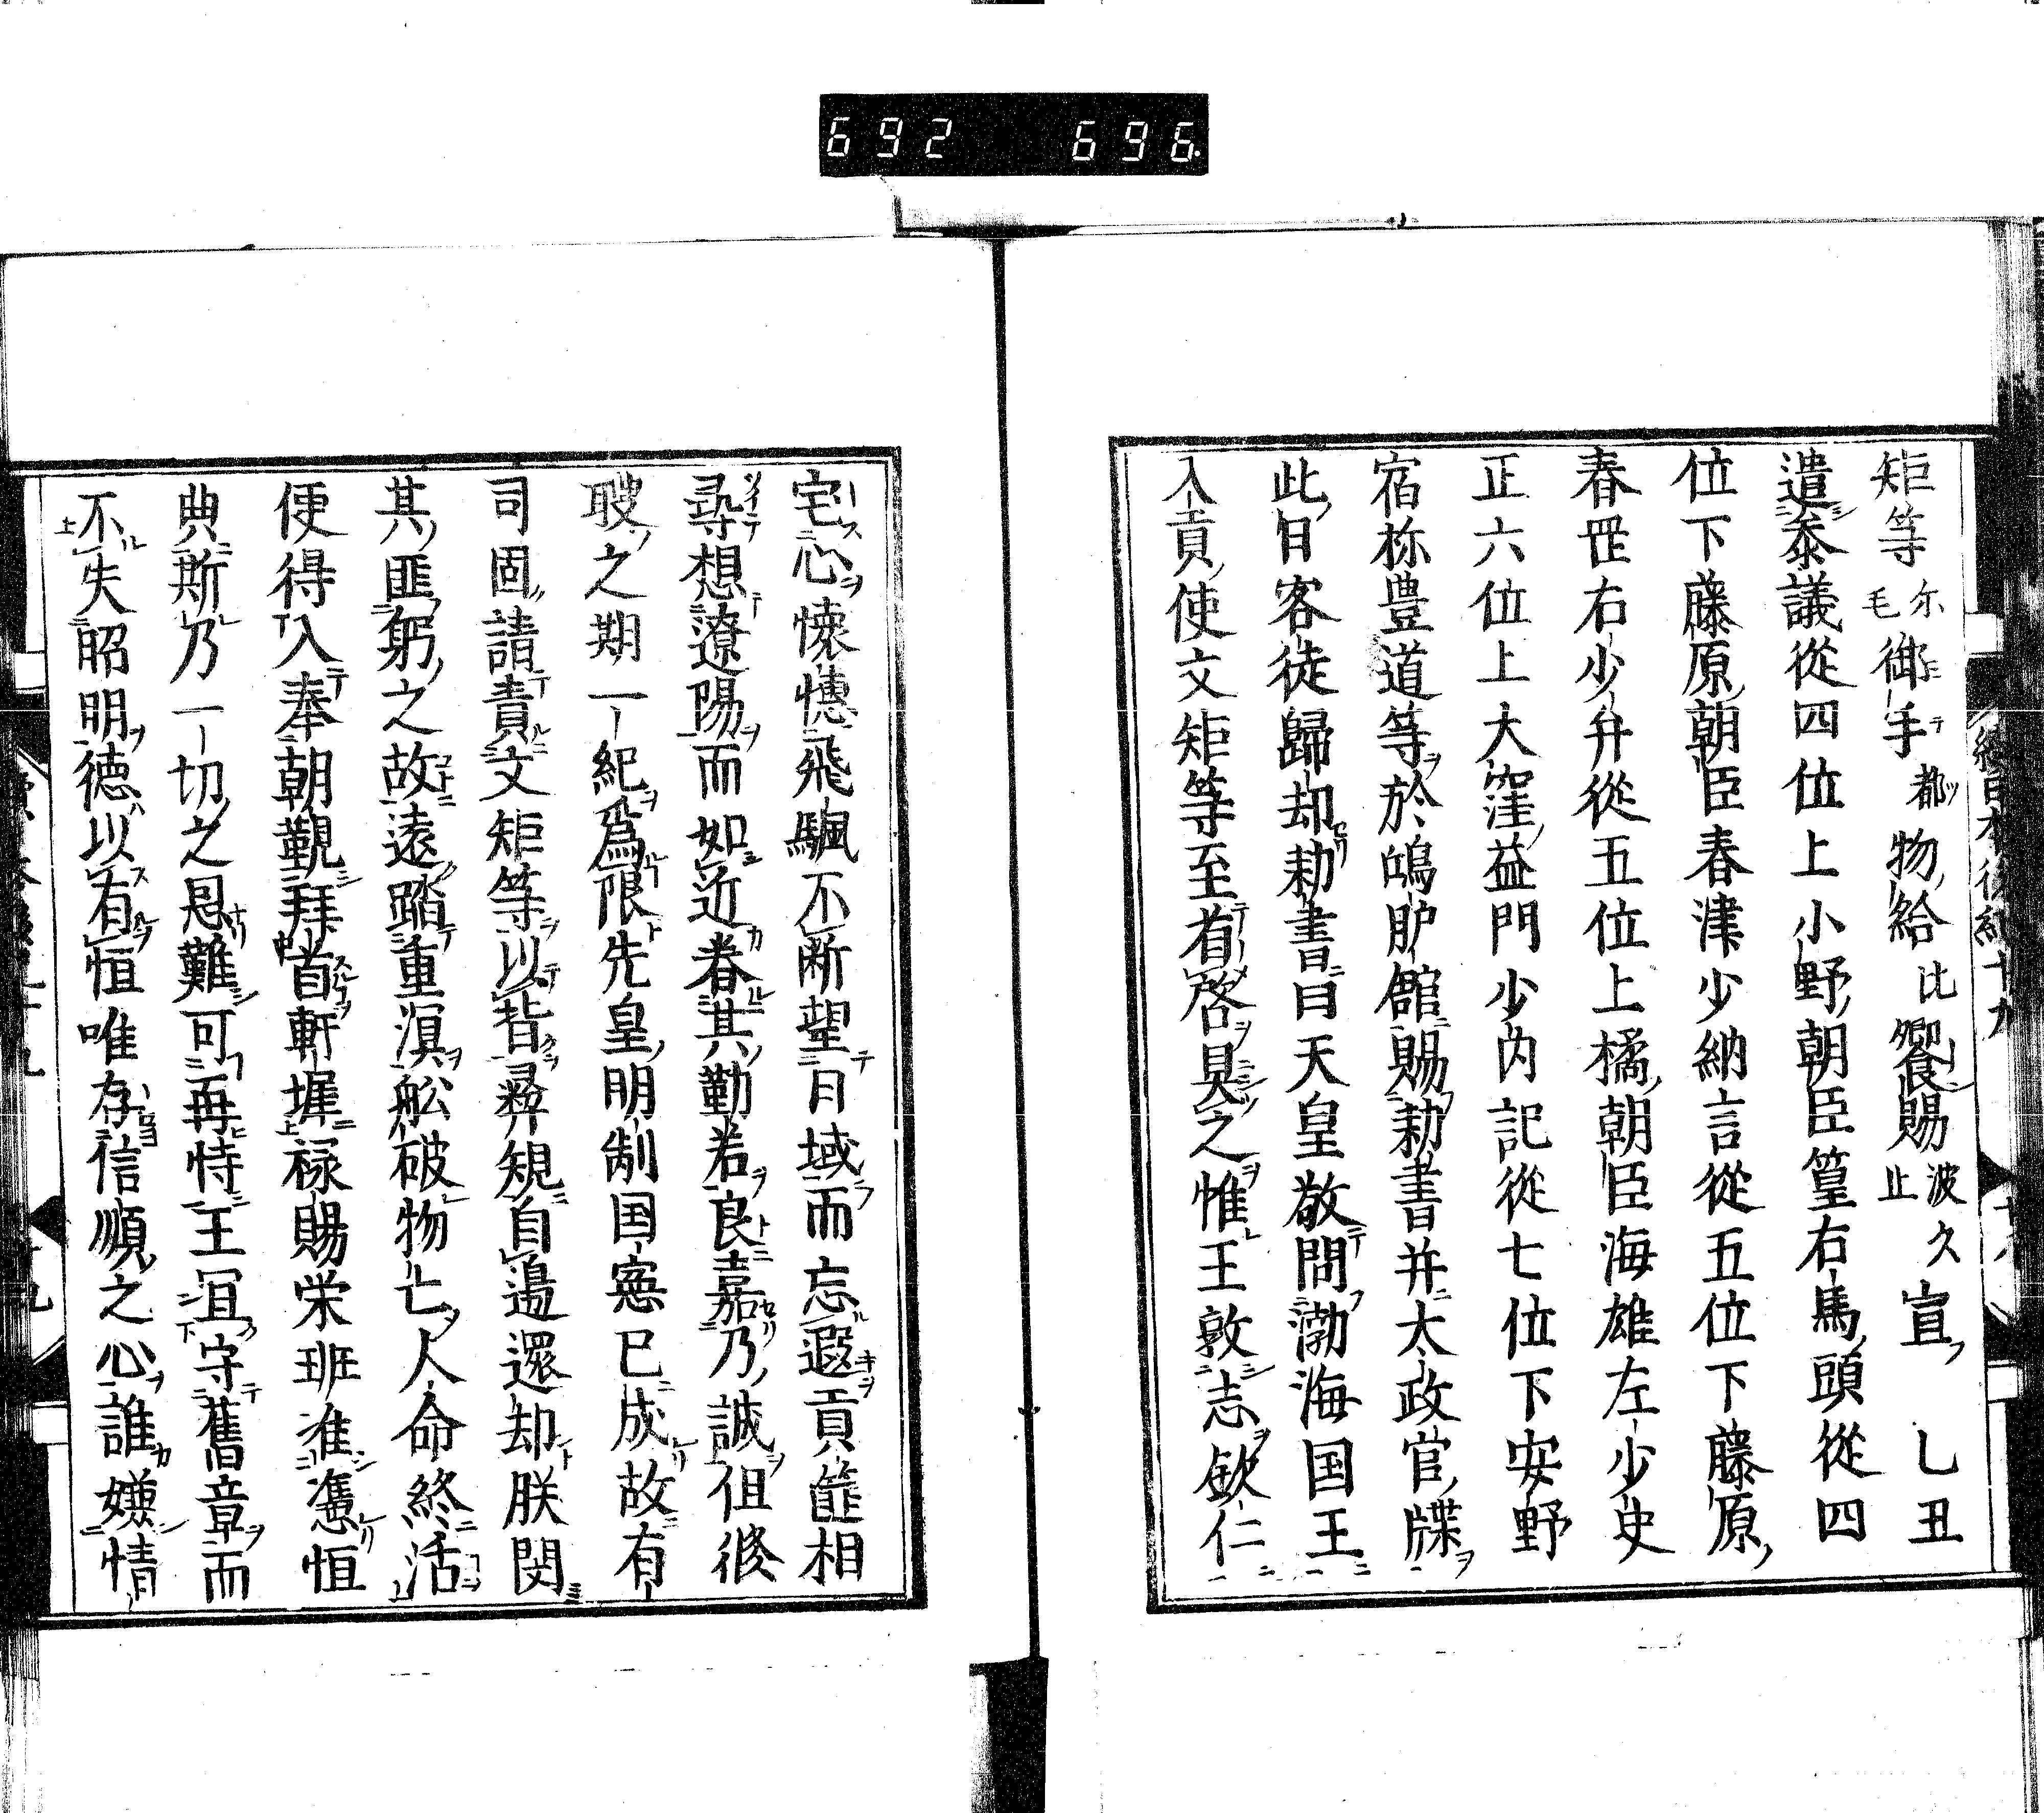 692 696
矩等尓毛御手都物給比饗賜波久止宣乙丑
遣叅議從四位上小野朝臣篁右馬頭從四
位下藤原朝臣春津少納言從五位下藤原
春罡右少弁從五位上橘朝臣海雄左少史
正六位上大窪益門少内記從七位下安野
宿祢豊道等於鴻臚館賜勅書并太政官牒
此日客徒歸却勅書曰天皇敬問渤海国王
入貢使文矩等至省啓具之惟王敦志欽仁
宅心懐憓飛颿不断望日域而忘遐貢篚相
尋想遼陽而如近眷其勤若良嘉乃誠但後
聘之期一紀爲限先皇明制国憲已成故有
司固請責文矩等以背彝規自邊還却朕閔
其匪躬之故遠踏重溟舩破物亡人命終活
便得入奉朝覲拜首軒墀禄賜栄班准憑恒
典斯乃一切之恩難可再恃王冝守舊章而
不失昭明德以有恒唯存信順之心誰嫌情